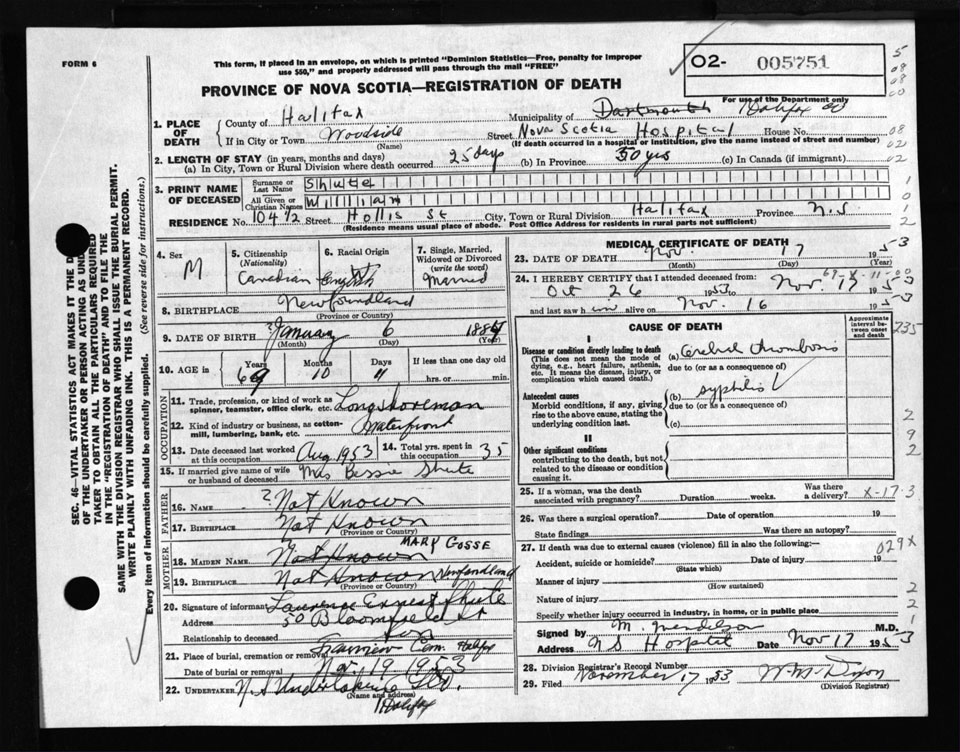 FORM 6
This form, if placed in an envelope, on which is printed "Dominion Statistics—Free, penalty for improper
use $50," and properly addressed will pass through the mail "FREE"
O2- 005751
PROVINCE OF NOVA SCOTIA—REGISTRATION OF DEATH
For use of the Department only
1. PLACE OF DEATH
County of Halifax Municipality of Dartmouth Halifax Co
If in City or Town Woodside Street Nova Scotia Hospital House No.
(Name) (If death occurred in a hospital or institution, give the name instead of street and number)
2. LENGTH OF STAY (in years, months and days)
(a) In City, Town or Rural Division where death occurred 25 days (b) In Province 50 yrs (c) In Canada (if immigrant)
3. PRINT NAME OF DECEASED
Surname or Last Name Shute
All Given or Christian Names William
RESIDENCE No. 104 1/2 Street Hollis St City, Town or Rural Division Halifax Province N.S.
(Residence means usual place of abode. Post Office Address for residents in rural parts not sufficient)
4. Sex M
5. Citizenship (Nationality) Canadian
6. Racial Origin English
7. Single, Married, Widowed or Divorced (write the word) Married
8. BIRTHPLACE Newfoundland
(Province or Country)
9. DATE OF BIRTH January 6 1884
(Month) (Day) (Year)
10. AGE in Years 69 Months 10 Days 11 If less than one day old
hrs. or min.
OCCUPATION
11. Trade, profession, or kind of work as spinner, teamster, office clerk, etc. Longshoreman
12. Kind of industry or business, as cotton-mill, lumbering, bank, etc. Waterfront
13. Date deceased last worked Aug 1953 14. Total yrs. spent in 35
15. If married give name of wife or husband of deceased Mrs Bessie Shute
FATHER
16. NAME Not Known
17. BIRTHPLACE Not Known
MOTHER
18. MAIDEN NAME Not Known MARY GOSSE
19. BIRTHPLACE Not Known Newfoundland
(Province or Country)
20. Signature of informant Laurence Ernest Shute
Address 50 Bloomfield St
Relationship to deceased Son
21. Place of burial, cremation or removal Fairview Cem. Halifax
Date of burial or removal Nov. 19 1953
22. UNDERTAKER N.S Undertaking Co.
(Name and address)
Halifax
MEDICAL CERTIFICATE OF DEATH
23. DATE OF DEATH Nov. 17 1953
(Month) (Day) (Year)
24. I HEREBY CERTIFY that I attended deceased from:
Oct 26 1953 to Nov. 17 1953
and last saw him alive on Nov. 16 1953
CAUSE OF DEATH
Approximate interval between onset and death
I
Disease or condition directly leading to death
(This does not mean the mode of dying, e.g., heart failure, asthenia, etc. It means the disease, injury, or complication which caused death.)
(a) Cerebral thrombosis
due to (or as a consequence of)
Antecedent causes
Morbid conditions, if any, giving rise to the above cause, stating the underlying condition last.
(b) syphilis
due to (or as a consequence of)
(c)
II
Other significant conditions
contributing to the death, but not related to the disease or condition causing it.
25. If a woman, was the death associated with pregnancy? Duration weeks. Was there a delivery?
X-17-3
26. Was there a surgical operation? Date of operation 19
State findings Was there an autopsy?
27. If death was due to external causes (violence) fill in also the following:—
029X
Accident, suicide or homicide? Date of injury 19
(State which)
Manner of injury
(How sustained)
Nature of injury
Specify whether injury occurred in industry, in home, or in public place
Signed by M. M.D.
Address N S Hospital Date Nov 17 1953
28. Division Registrar's Record Number
29. Filed November 17 1953 Dixon
(Division Registrar)
SEC. 46—VITAL STATISTICS ACT MAKES IT THE
OF THE UNDERTAKER OR PERSON ACTING AS
TAKER TO OBTAIN ALL THE PARTICULARS REQUIRED
IN THE "REGISTRATION OF DEATH" AND TO FILE THE
SAME WITH THE DIVISION REGISTRAR WHO SHALL ISSUE THE BURIAL PERMIT.
WRITE PLAINLY WITH UNFADING INK. THIS IS A PERMANENT RECORD.
Every item of information should be carefully supplied. (See reverse side for instructions.)